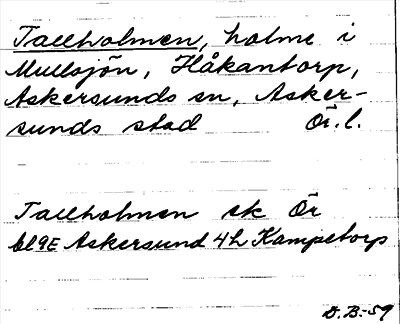 Tallholmen, holme i
Mullsjön, Håkantorp,
Askersunds sn, Asker-
sunds stad Ör. l.
Tallholmen ek Ör
bl 9E Askersund 4h Kampetorp
D.B.-59